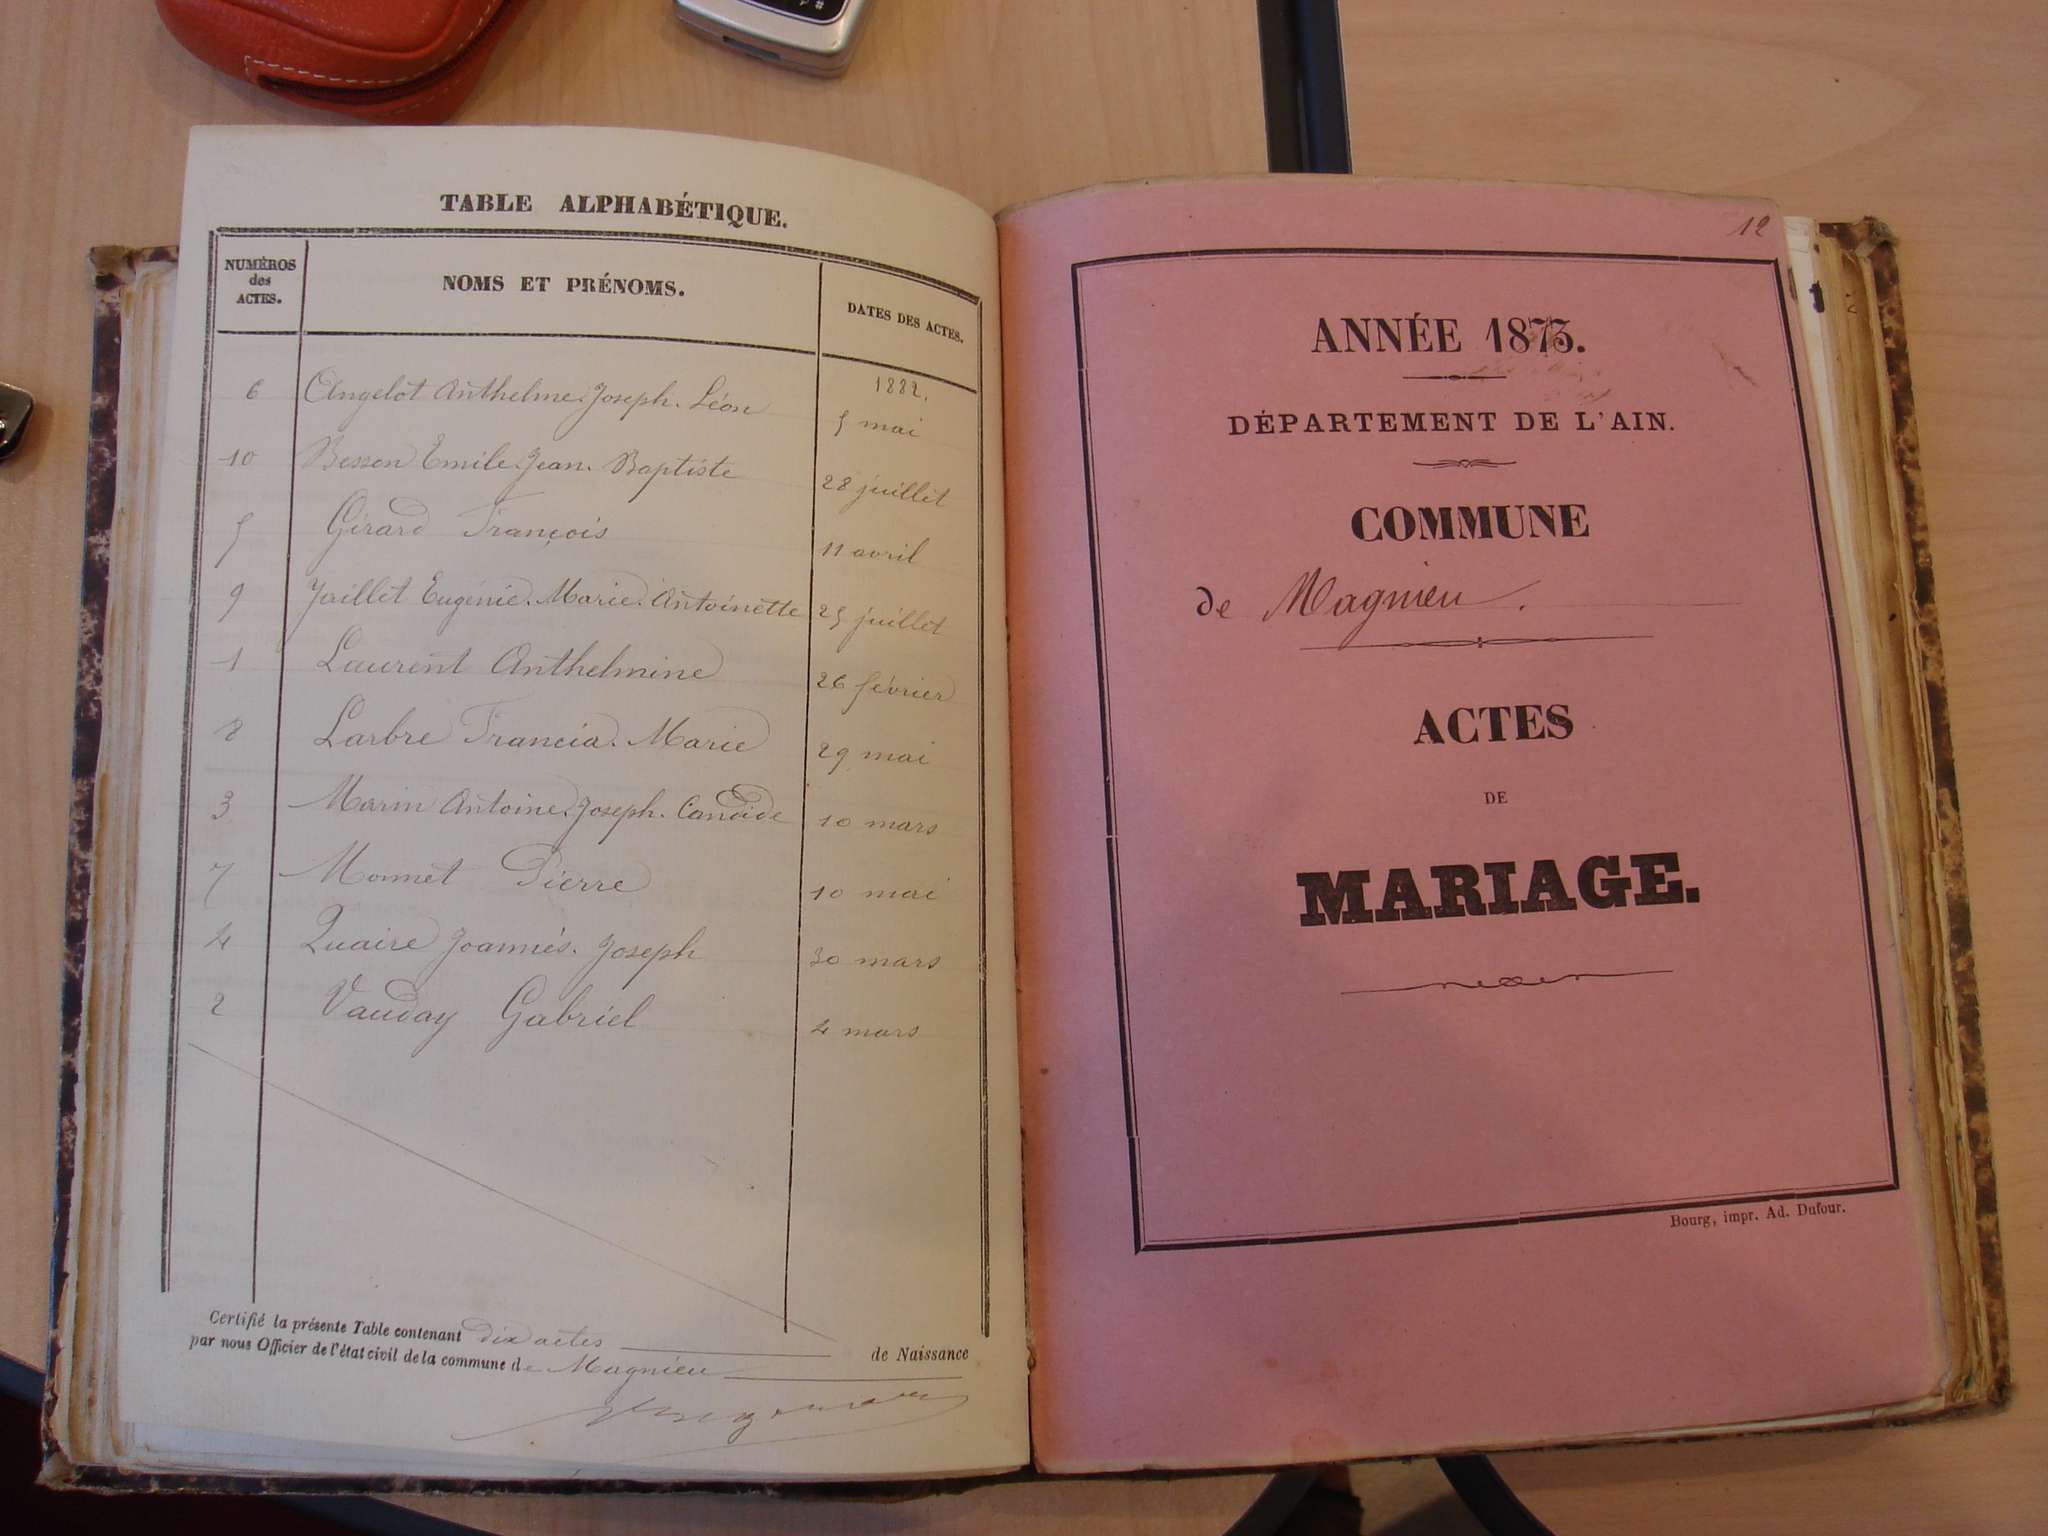 TABLE ALPHABÉTIQUE.
NUMÉROS
des
ACTES.
NOMS ET PRÉNOMS.
DATES DES ACTES.
1882.
6 Angelot Anthelme. Joseph. Léon 5 mai
10 Besson Emile. Jean. Baptiste 28 juillet
5 Girard François 11 avril
9 Jaillet Eugénie. Marie. Antoinette 25 juillet
1 Laurent Anthelmine 26 février
8 Larbre Francia. Marie 29 mai
3 Marin Antoine. Joseph. Candide 10 mars
7 Monnet Pierre 10 mai
4 Quaire Joannès. Joseph 30 mars
2 Vauday Gabriel 4 mars
Certifié la présente Table contenant dix actes de Naissance
par nous Officier de l'état civil de la commune de Magnieu
12
ANNÉE 1873.
DÉPARTEMENT DE L'AIN.
COMMUNE
de Magnieu.
ACTES
DE
MARIAGE.
Bourg, impr. Ad. Dufour.